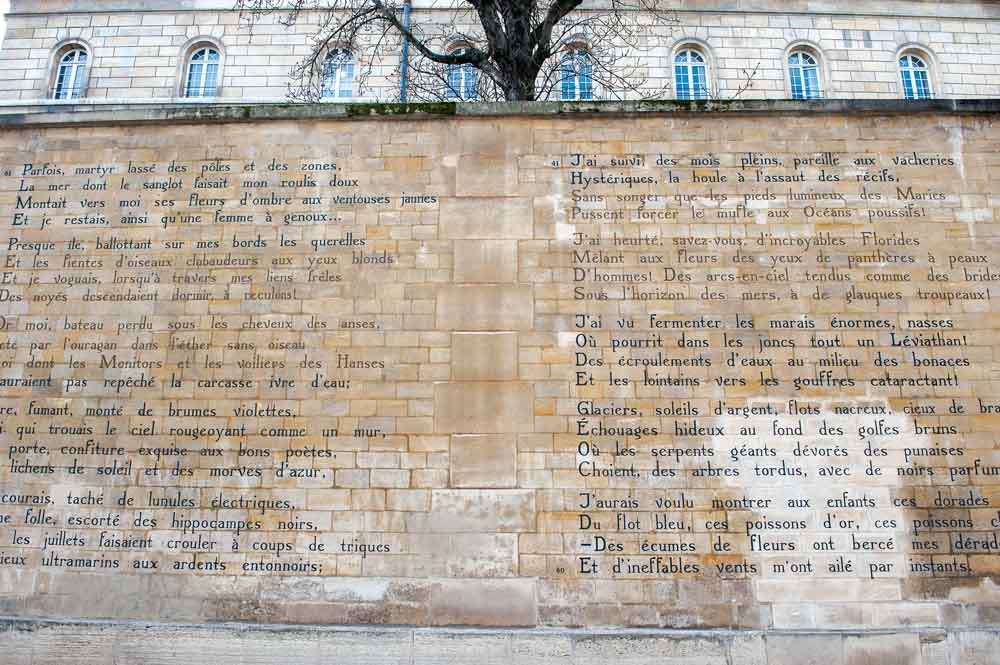 61 Parfois, martyr lassé des pôles et des zones,
La mer dont le sanglot faisait mon roulis doux
Montait vers moi ses fleurs d'ombre aux ventouses jaunes
Et je restais, ainsi qu'une femme à genoux...
Presque île, ballottant sur mes bords les querelles
Et les fientes d'oiseaux clabaudeurs aux yeux blonds
Et je voguais, lorsqu'à travers mes liens frêles
Des noyés descendaient dormir, à reculons!
Or moi, bateau perdu sous les cheveux des anses,
eté par l'ouragan dans l'éther sans oiseau
oi dont les Monitors et les voiliers des Hanses
auraient pas repêché la carcasse ivre d'eau;
re, fumant, monté de brumes violettes,
i qui trouais le ciel rougeoyant comme un mur,
porte, confiture exquise aux bons poètes,
lichens de soleil et des morves d'azur,
courais, taché de lunules électriques,
ne folle, escorté des hippocampes noirs,
les juillets faisaient crouler à coups de triques
ieux ultramarins aux ardents entonnoirs;
41 J'ai suivi, des mois pleins, pareille aux vacheries
Hystériques, la houle à l'assaut des récifs,
Sans songer que les pieds lumineux des Maries
Pussent forcer le mufle aux Océans poussifs!
J'ai heurté, savez-vous, d'incroyables Florides
Mêlant aux fleurs des yeux de panthères à peaux
D'hommes! Des arcs-en-ciel tendus comme des brides
Sous l'horizon des mers, à de glauques troupeaux!
J'ai vu fermenter les marais énormes, nasses
Où pourrit dans les joncs tout un Léviathan!
Des écroulements d'eaux au milieu des bonaces
Et les lointains vers les gouffres cataractant!
Glaciers, soleils d'argent, flots nacreux, cieux de bra
Échouages hideux au fond des golfes bruns
Où les serpents géants dévorés des punaises
Choient, des arbres tordus, avec de noirs parfum
J'aurais voulu montrer aux enfants ces dorades
Du flot bleu, ces poissons d'or, ces poissons c
-Des écumes de fleurs ont bercé mes dérad
60 Et d'ineffables vents m'ont ailé par instants.